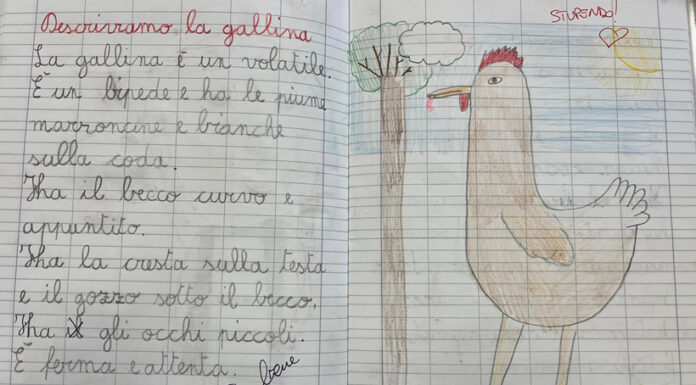 Descriviamo la gallina
La gallina è un volatile.
È un bipede e ha le piume
marroncine e bianche
sulla coda.
Ha il becco curvo e
appuntito.
Ha la cresta sulla testa
e il gozzo sotto il becco.
Ha gli occhi piccoli.
È ferma e attenta.
bene
STUPENDO!